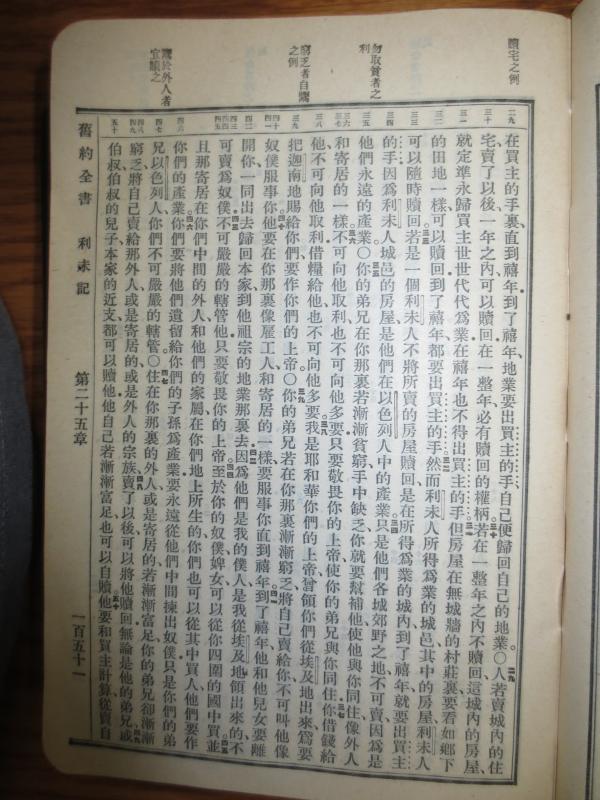 贖宅之例
勿取貧者之利
窮乏者自鬻之例
鬻於外人者宜贖之
二九
三十
三一
三二
三三
三四
三五
三六
三七
三八
三九
四十
四一
四二
四三
四四
四五
四六
四七
四八
四九
五十
在買主的手裏直到禧年到了禧年地業要出買主的手自己便歸回自己的地業〇人若賣城內的住
宅賣了以後一年之內可以贖回在一整年必有贖回的權柄若在一整年之內不贖回這城內的房屋
就定準永歸買主世世代代爲業在禧年也不得出買主的手但房屋在無城牆的村莊裏要看如鄉下
的田地一樣可以贖回到了禧年都要出買主的手然而利未人所得爲業的城邑其中的房屋利未人
可以隨時贖回若是一個利未人不將所賣的房屋贖回是在所得爲業的城內到了禧年就要出買主
的手因爲利未人城邑的房屋是他們在以色列人中的產業只是他們各城郊野之地不可賣因爲是
他們永遠的產業〇你的弟兄在你那裏若漸漸貧窮手中缺乏你就要幫補他使他與你同住像外人
和寄居的一樣不可向他取利也不可向他多要只要敬畏你的上帝使你的弟兄與你同住你借錢給
他不可向他取利借糧給他也不可向他多要我是耶和華你們的上帝曾領你們從埃及地出來爲要
把迦南地賜給你們要作你們的上帝〇你的弟兄若在你那裏漸漸窮乏將自己賣給你不可叫他像
奴僕服事你他要在你那裏像雇工人和寄居的一樣要服事你直到禧年到了禧年他和他兒女要離
開你一同出去歸回本家到他祖宗的地業那裏去因爲他們是我的僕人是我從埃及地領出來的不
可賣爲奴僕不可嚴嚴的轄管他只要敬畏你的上帝至於你的奴僕婢女可以從你四圍的國中買並
且那寄居在你們中間的外人和他們的家屬在你們地上所生的你們也可以從其中買人他們要作
你們的產業你們要將他們遺留給你們的子孫爲產業要永遠從他們中間揀出奴僕只是你們的弟
兄以色列人你們不可嚴嚴的轄管〇住在你那裏的外人或是寄居的若漸漸富足你的弟兄卻漸漸
窮乏將自己賣給那外人或是寄居的或是外人的宗族賣了以後可以將他贖回無論是他的弟兄或
伯叔伯叔的兒子本家的近支都可以贖他他自己若漸漸富足也可以自贖他要和買主計算從賣自
舊約全書 利未記 第二十五章 一百五十一